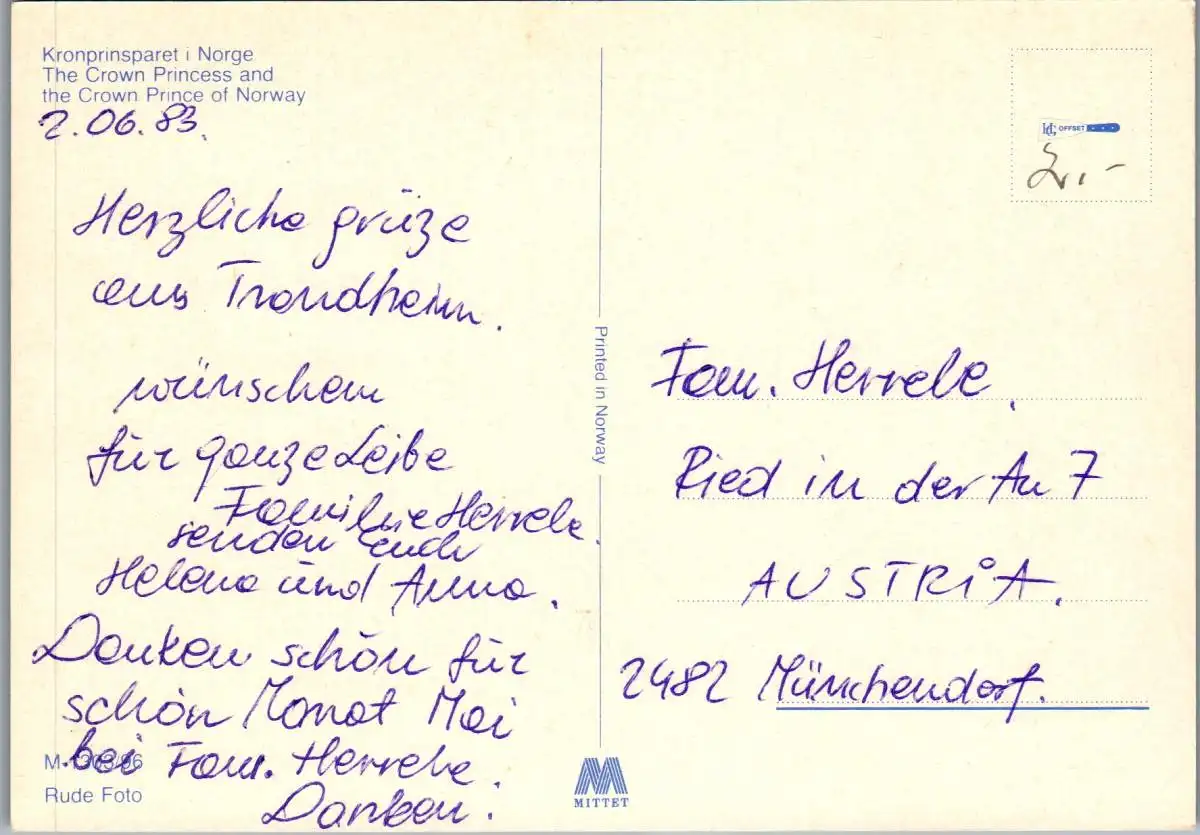 Kronprinsparet i Norge
The Crown Princess and
the Crown Prince of Norway
2.06.83.
Herzliche grüze
aus Trondheim.
wünschen
für ganze Leibe
Familie Herrele.
senden Euch
Helena und Anna.
Danken schön für
schön Monat Mai
bei Fam. Herrele.
Danken.
M-1303/96
Rude Foto
Printed in Norway
MITTET
OFFSET
2,-
Fam. Herrele.
Ried in der Au 7
AUSTRIA.
2482 Münchendorf.